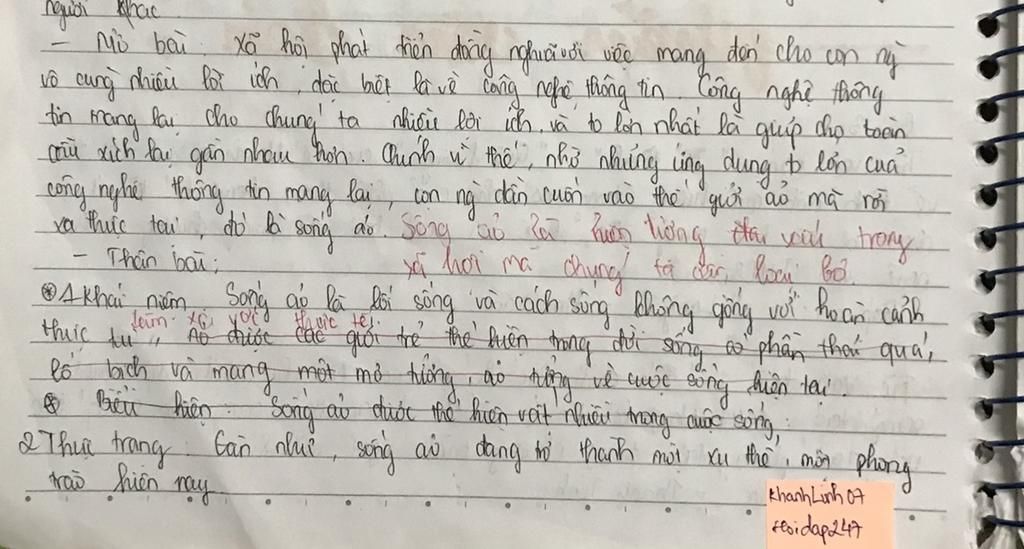 người khác
– Mở bài. Xã hội phát triển đồng nghĩa với việc mang đến cho con ng
vô cùng nhiều lợi ích, đặc biệt là về công nghệ thông tin. Công nghệ thông
tin mang lại cho chúng ta nhiều lợi ích, và to lớn nhất là giúp cho toàn
cầu xích lại gần nhau hơn. Chính vì thế, nhờ những ứng dụng to lớn của
công nghệ thông tin mang lại, con ng dần cuốn vào thế giới ảo mà rời
xa thực tại, đó là sống ảo. Sống ảo là hiện tượng đáu xấu trong
– Thân bài: xã hội mà chúng ta cần loại bỏ.
⊛ 1 khái niệm Sống ảo là lối sống và cách sống không giống với hoàn cảnh
làm xa vời thực tế.
thực tự, nó được các giới trẻ thể hiện trong đời sống có phần thái quá,
lố bịch và mang một mơ tưởng, ảo tưởng về cuộc sống hiện tại.
⊛ Biểu hiện. Sống ảo được thể hiện rất nhiều trong cuộc sống,
2 Thực trạng. Gần như, sống ảo đang trở thành một xu thế, một phong
trào hiện nay
KhanhLinh07
hoidap247